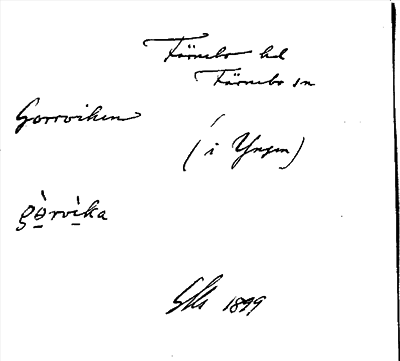 Färnebo hd
Färnebo sn
Gorrviken
(i Yngen)
gòrvìka
1899